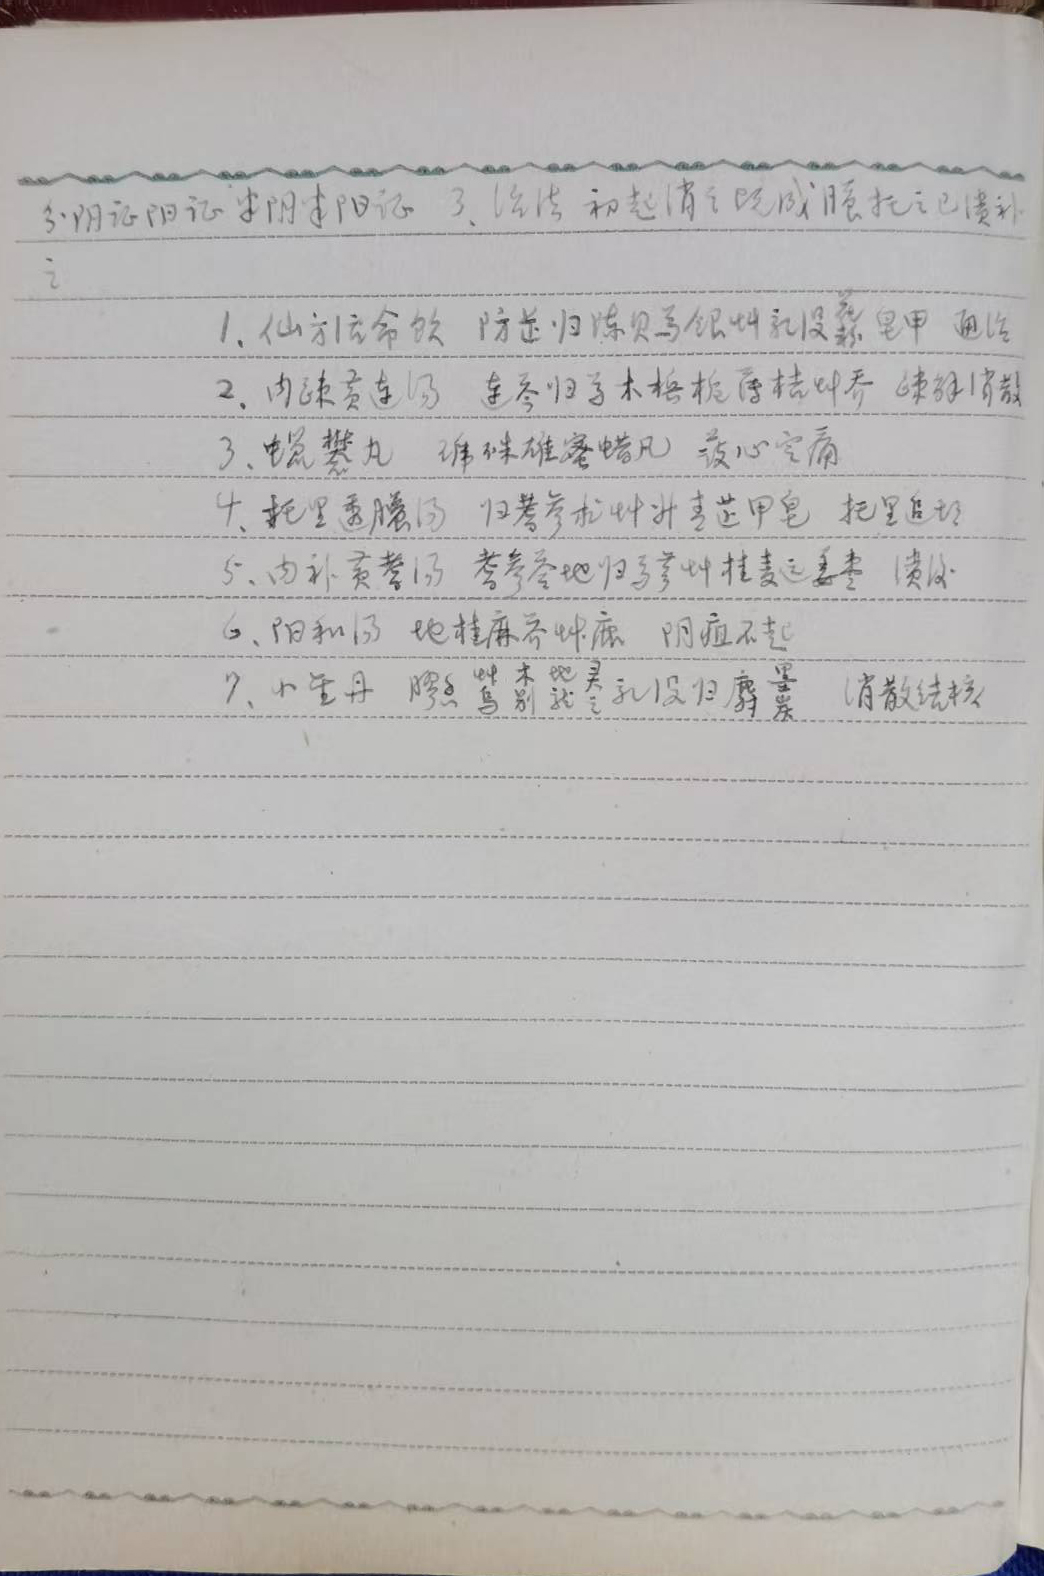 分阴证阳证半阴半阳证 3、治法 初起消之既成脓托之已溃补
之
1、仙方活命饮 防芷归陈贝芍银草乳没 皂甲 通治
2、内疏黄连汤 连芩归芍木槟栀薄桔草乔 疏解消散
3、蜡攀丸 珠雄蜜蜡凡 护心定痛
4、托里透脓汤 归蓍参术草升青芷甲皂 托里追
5、内补黄蓍汤 蓍参苓地归芍草桂麦远姜枣 溃后
6、阳和汤 地桂麻芥草鹿 阴疽不起
7、小金丹 胶香 草乌 木别 地龙 灵之 乳没归麝 墨炭 消散结核